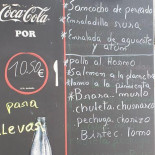 Coca-Cola
POR
10.50€
para
llevas
* Sancocho de pescado
* Ensaladilla rusa
* Ensalada de aguacate
y atún
* pollo al Horno
* Salmon a la plancha
* Lomo a la pimienta
* Brasa - muslo
chuleta, churrasco
pechuga, chorizo
Bistec lomo